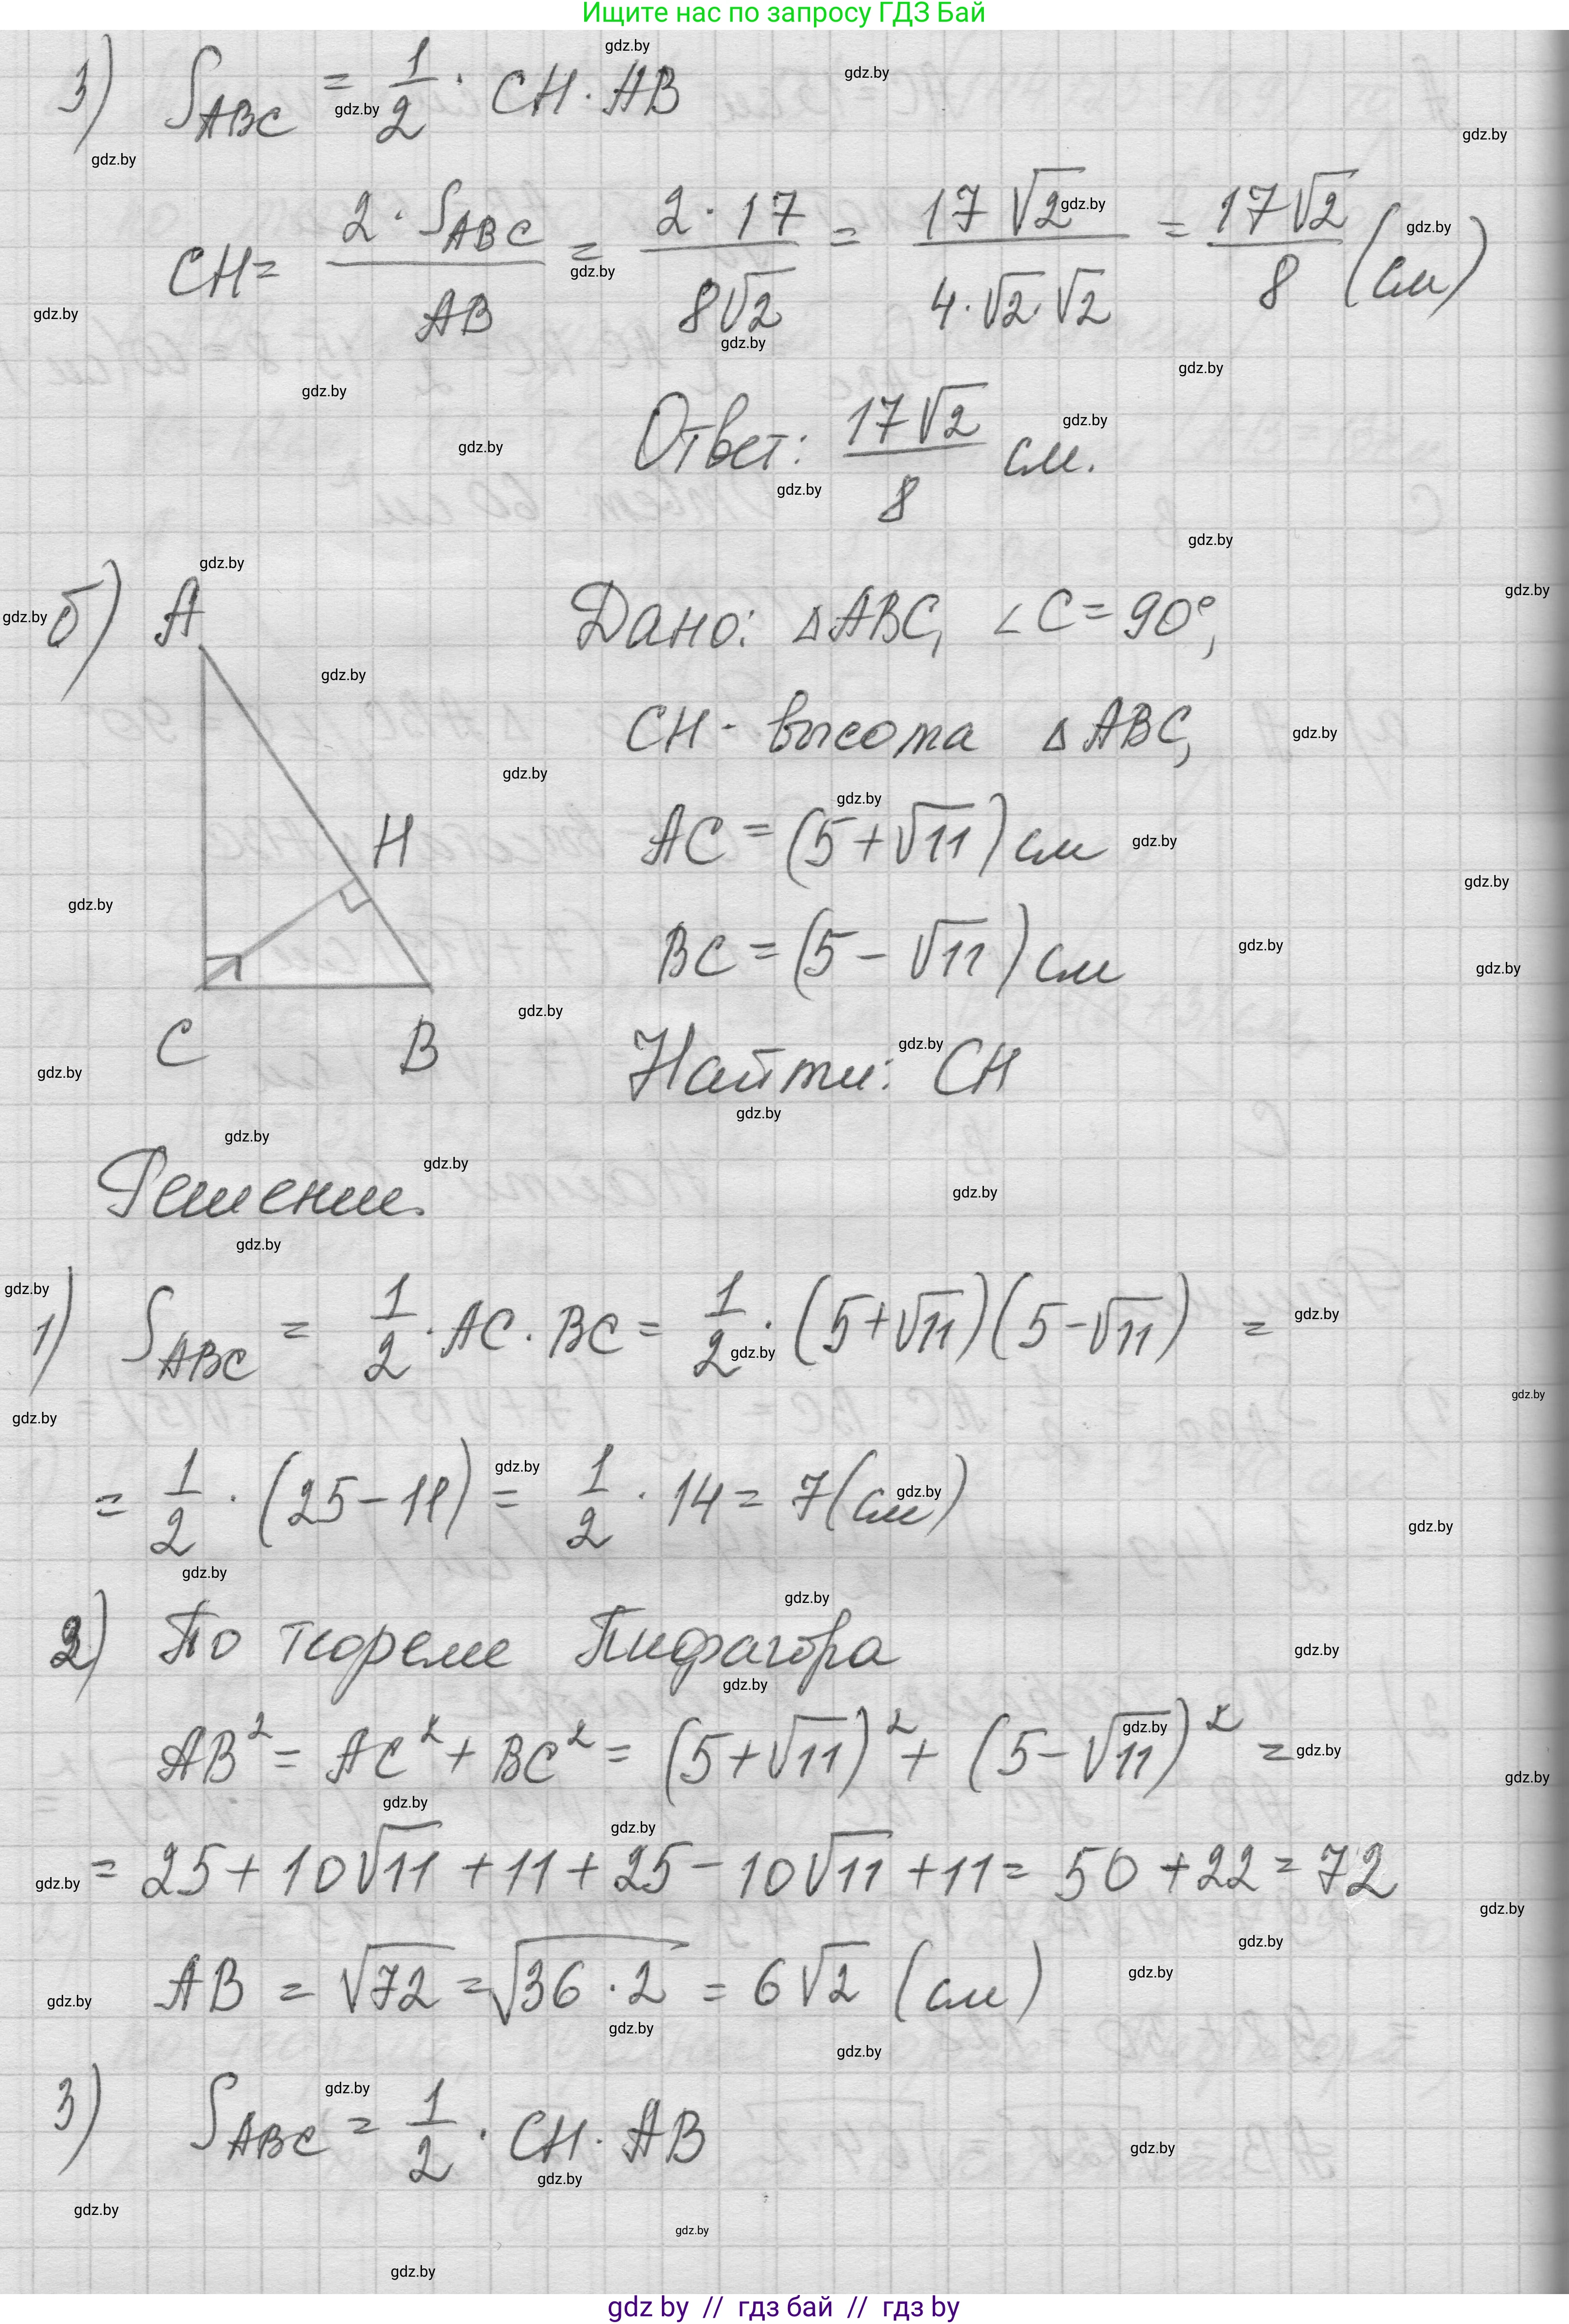 Ищите нас по запросу ГДЗ Бай
3) S_ABC = 1/2 · CH · AB
CH = 2 · S_ABC / AB = 2 · 17 / 8√2 = 17√2 / 4 · √2 · √2 = 17√2 / 8 (см)
Ответ: 17√2 / 8 см.
б) A
Дано: △ABC, ∠C = 90°,
CH - высота △ABC,
H
AC = (5 + √11) см
BC = (5 - √11) см
C B
Найти: CH
Решение.
1) S_ABC = 1/2 · AC · BC = 1/2 · (5 + √11)(5 - √11) =
= 1/2 · (25 - 11) = 1/2 · 14 = 7 (см)
2) По теореме Пифагора
AB² = AC² + BC² = (5 + √11)² + (5 - √11)² =
= 25 + 10√11 + 11 + 25 - 10√11 + 11 = 50 + 22 = 72
AB = √72 = √36 · 2 = 6√2 (см)
3) S_ABC = 1/2 · CH · AB
gdz.by
gdz by // гдз бай // гдз by